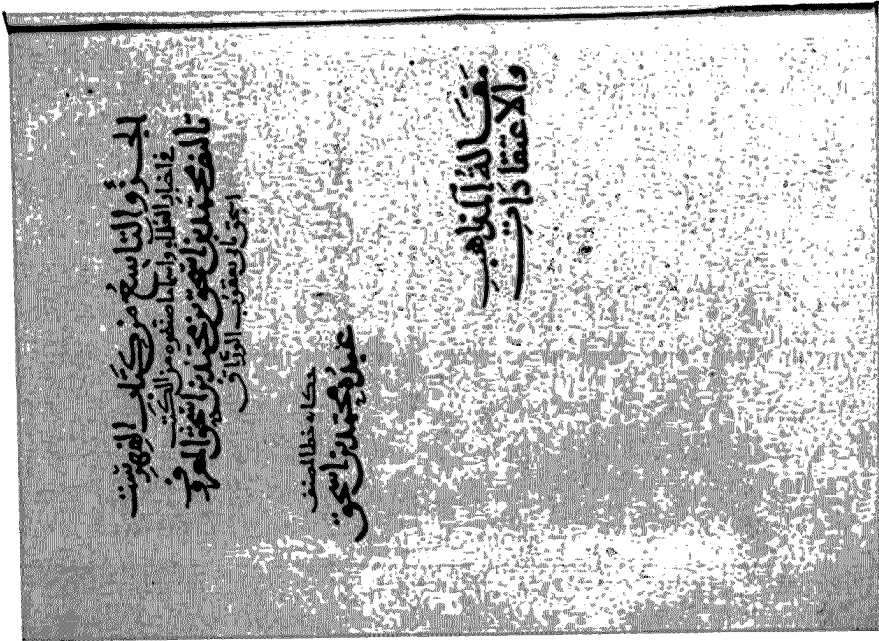 الجزؤ التاسع من كتاب الفهرست
في اخبار العلماء واسما ما صنفوه من الكتب
تاليف محمد بن اسحق بن محمد بن اسحق المعروف
اسحق بابي يعقوب الوراق
حكاية خط المصنف
عبده محمد بن اسحق
مقالة المذاهب
والاعتقادات